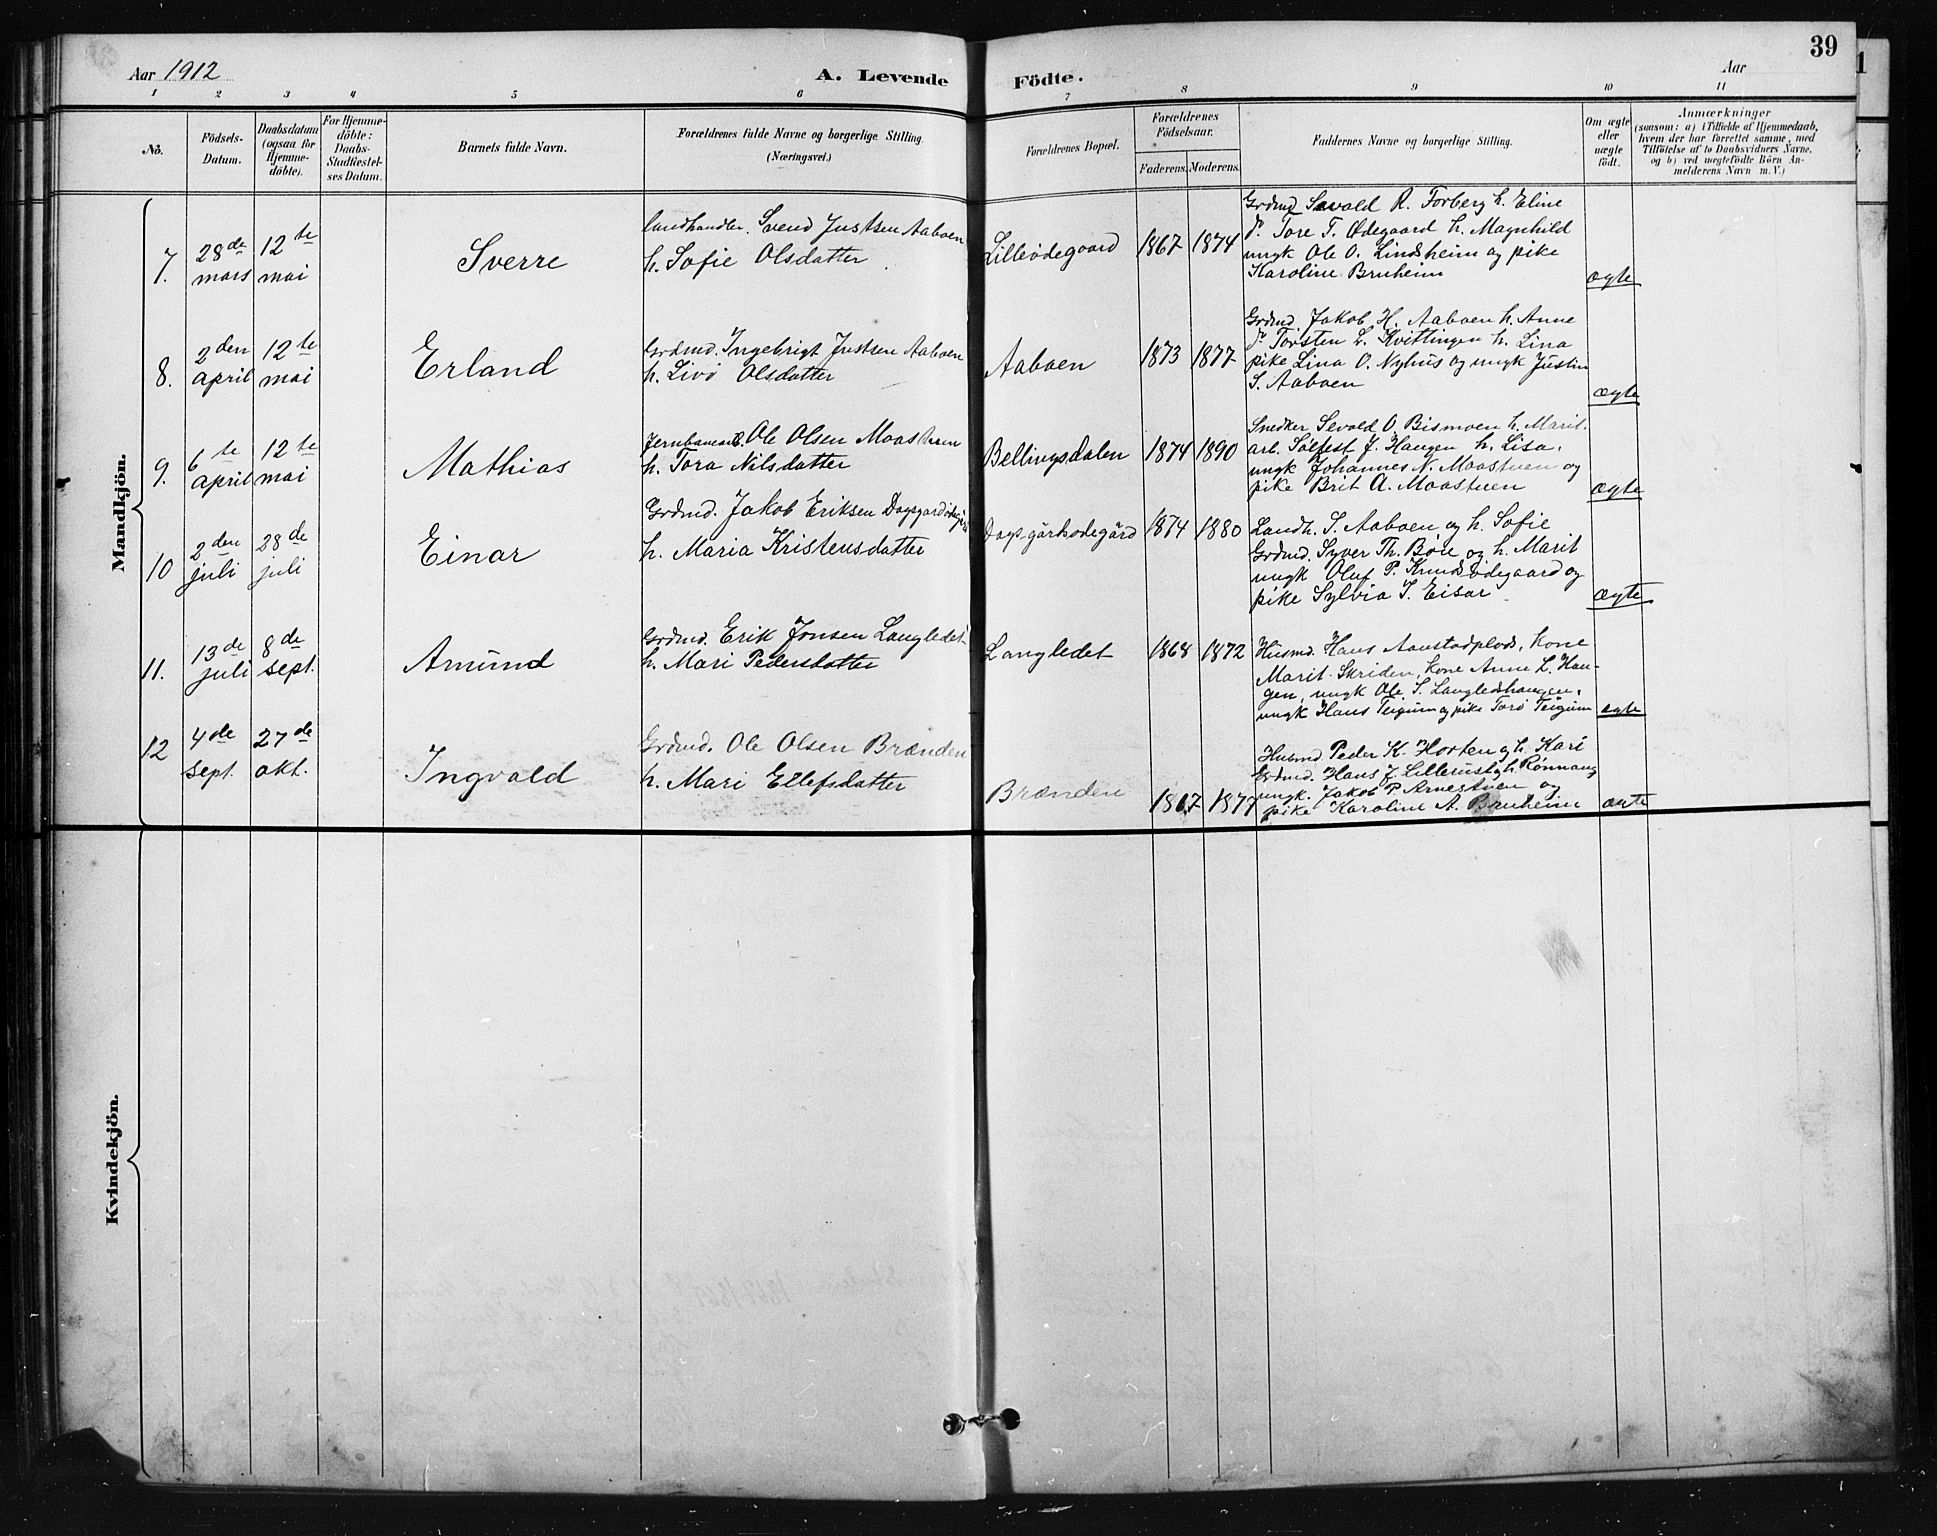 39
Aar 1912
A. Levende Födte.
Aar
1 2 3 4 5 6 7 8 9 10 11
No.
Födsels-
Datum.
Daabsdatum
(ogsaa for
Hjemme-
döbte).
For Hjemme-
döbte:
Daabs-
Stadfæstel-
ses Datum.
Barnets fulde Navn.
Forældrenes fulde Navne og borgerlige Stilling.
(Næringsvei.)
Forældrenes Bopæl.
Forældrenes
Födselsaar.
Faderens. Moderens.
Faddernes Navne og borgerlige Stilling.
Om ægte
eller
uægte
födt.
Anmærkninger
(saasom: a) i Tilfælde af Hjemmedaab,
hvem der har forrettet samme, med
Tilföielse af to Daabsvidners Navne,
og b) ved uægtefödte Börn An-
melderens Navn m. V.)
Mandkjön.
7. 28de mars 12te mai
Sverre
landhandler. Svend Justsen Aaboen
h. Sofie Olsdatter
Lilleödegaard 1867 1874
Grdmd Sevald R. Forberg h. Eline
do. Tore T. Ødegaard h. Magnhild
ungk Ole O. Lindsheim og pike
Karoline Bruheim
ægte
8. 2den april 12te mai
Erland
Grdmd. Ingebrigt Justsen Aaboen
h. Livö Olsdatter
Aaboen 1873 1877
Grdmd. Jakob H. Aaboen h. Anne
do Torsten L. Kvittingen h. Lina
pike Lina O. Nyhus og ungk Justin
S. Aaboen
ægte
9. 6te april 12te mai
Mathias
Ole Olsen Moastuen
h. Tora Nilsdatter
Bellingsdalen 1874 1890
Snedker Sevald O. Bismoen h. Marit.
arb. Sölfest J. Haugen h. Lisa.
ungk Johannes N. Moastuen og
pike Brit A. Moastuen
ægte
10 2den juli 28de juli
Einar
Grdmd. Jakob Eriksen
h. Maria Kristensdatter
Dagsgårdsödegård 1874 1880
Landh. S. Aaboen og h. Sofie
Grdmd. Syver Th. Böe og h. Marit
ungk Oluf P. Knudsödegaard og
pike Sylvia J. Eisar
ægte
11. 13de juli 8de sept.
Amund
Grdmd. Erik Jonsen Langledet
h. Mari Pedersdatter
Langledet 1868 1872
Husmd. Hans Aaustadplads, kone
Marit Skriden, kone Anne L. Hau-
gen, ungk Ole S. Langledshaugen.
ungk Hans Teigum og pike Torö Teigum
ægte
12 4de sept. 27de okt.
Ingvald
Grdmd. Ole Olsen Brænden
h. Mari Ellefsdatter
Brænden 1867 1877
Husmd Peder K. Horten og h. Kari
Grdmd. Hans J. Lillerust og h. Rönnaug
ungk. Jakob P. Arnestuen og
pike Karoline A. Bruheim
ægte
Kvindekjön.